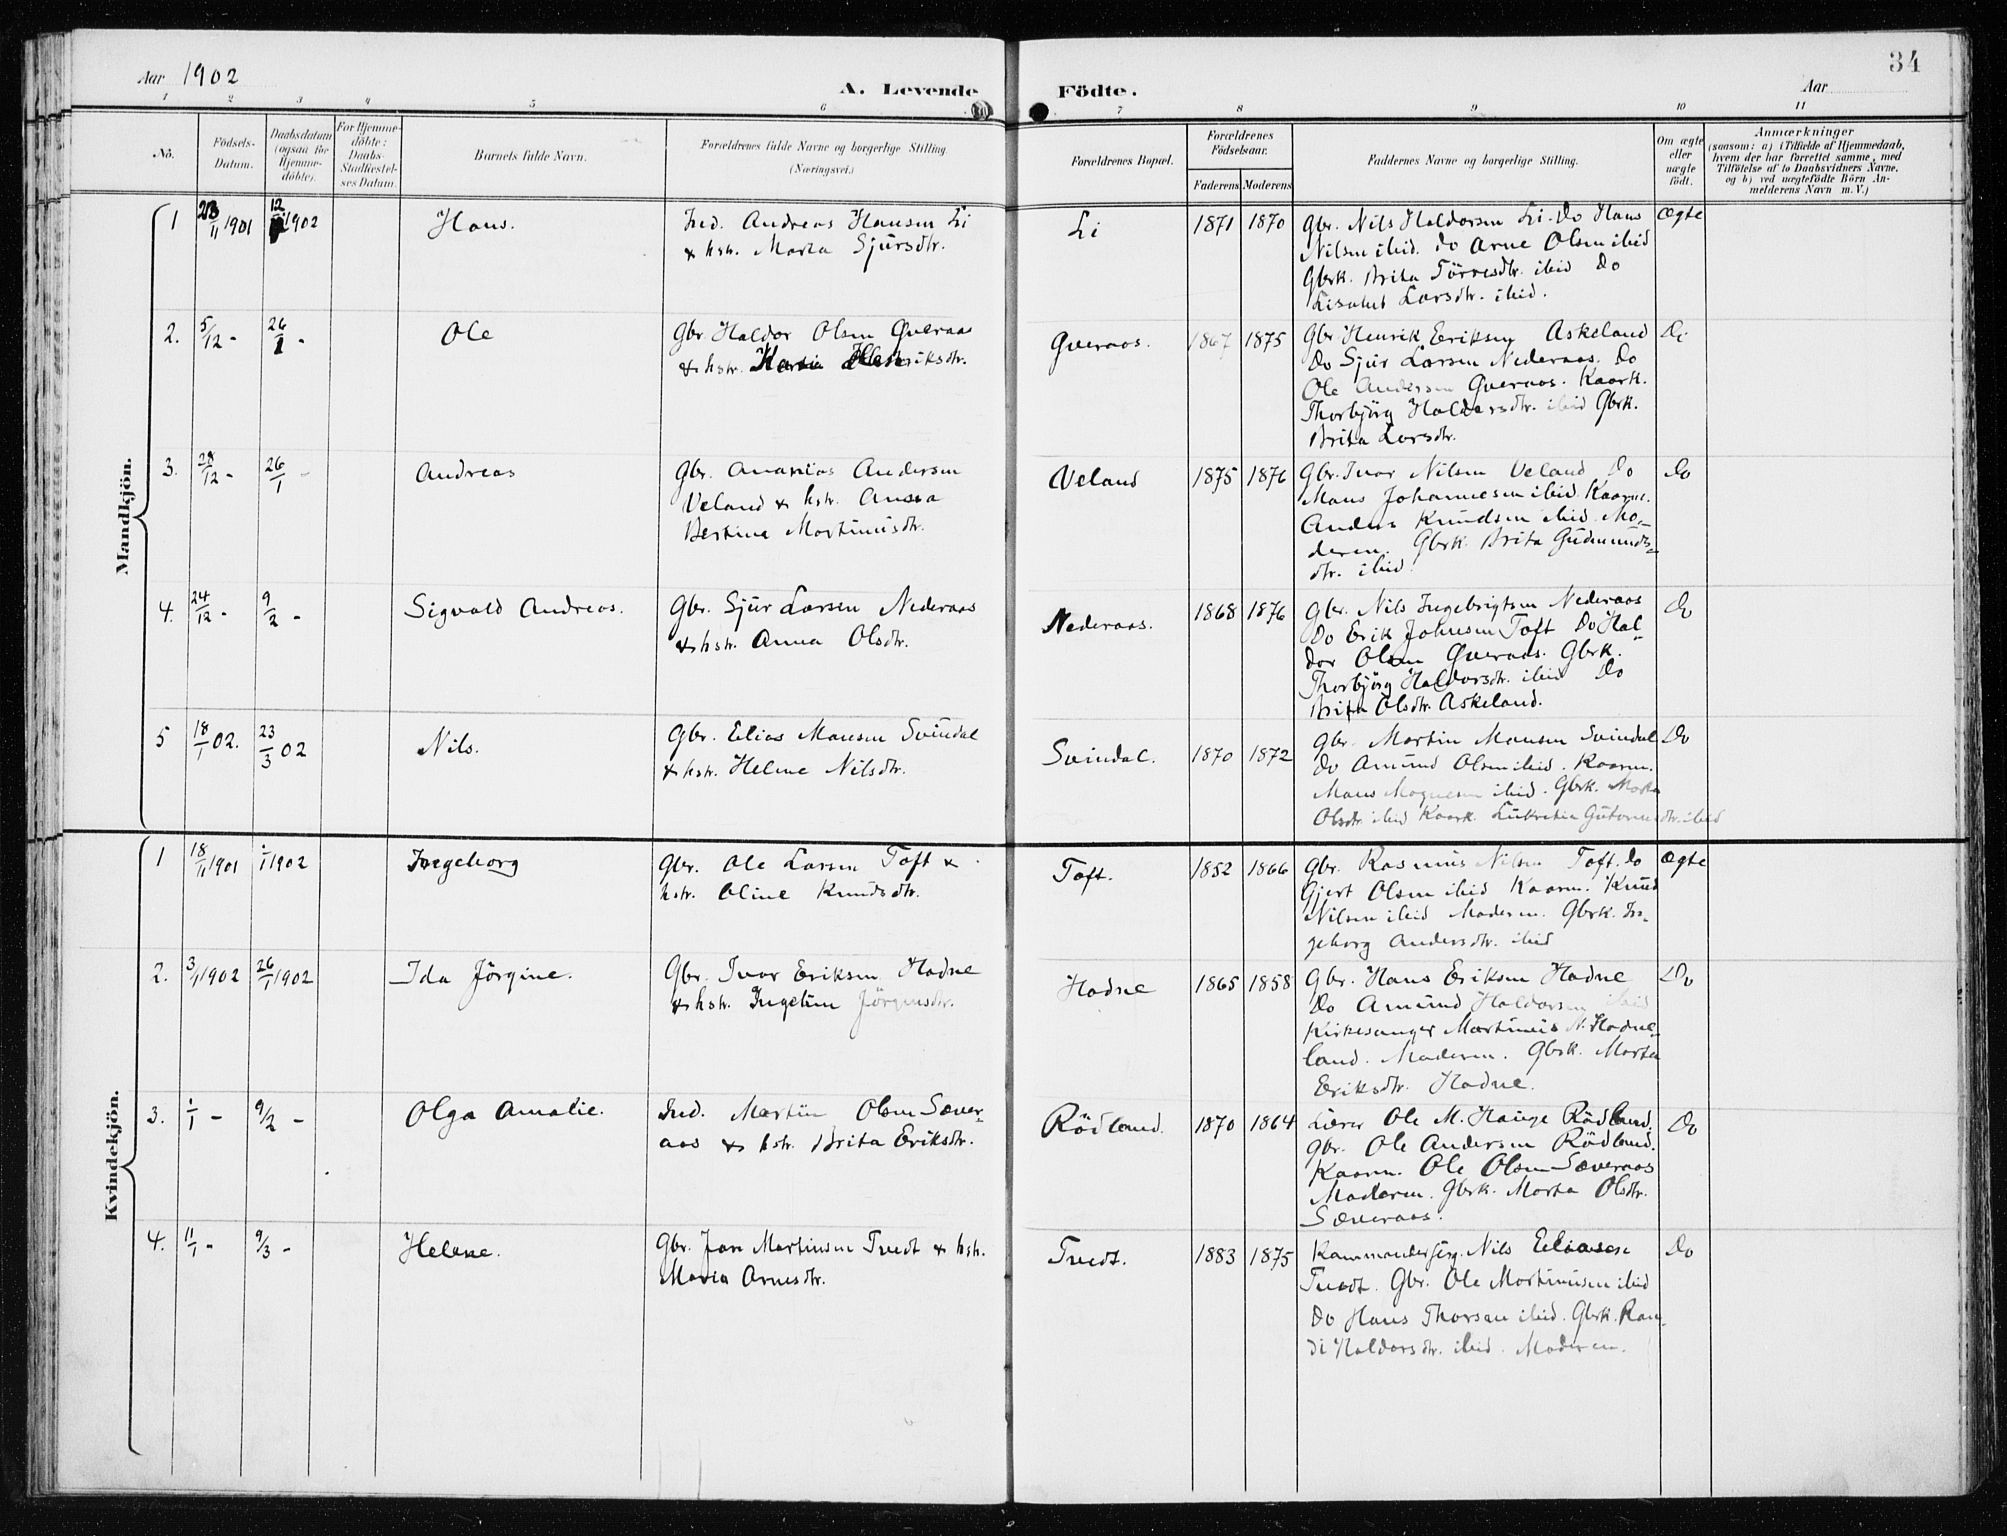 Aar 1902
A. Levende
Födte.
Aar
34
1 2 3 4 5 6 7 8 9 10 11
No.
Födsels-
Datum.
Daabsdatum
(ogsaa for
Hjemme-
döbte).
For Hjemme-
döbte:
Daabs-
Stadfæstel-
ses Datum.
Barnets fulde Navn.
Forældrenes fulde Navne og borgerlige Stilling.
(Næringsvei.)
Forældrenes Bopæl.
Forældrenes
Födselsaar.
Faderens Moderens
Faddernes Navne og borgerlige Stilling.
Om ægte
eller
uægte
födt.
Anmærkninger
(saasom: a) i Tilfælde af Hjemmedaab,
hvem der har forrettet samme, med
Tilföielse af to Daabsvidners Navne.
og b) ved uægtefödte Börn An-
melderens Navn m. V.)
Mandkjön.
1 11 1901 12 1902 Hans.
Ind. Andreas Hansen Li
& hstr. Marta Sjursdtr.
Li 1871 1870
Gbr. Nils Haldorsen Li. Do Hans
Nilsen ibid. Do Arne Olsen ibid
Gbrk. Brita Törresdtr. ibid Do
Lisabet Larsdtr. ibid.
ægte
2. 5/12 - 26/1 - Ole
Gbr Haldor Olsen Qveraas
& hstr. Henriksdtr.
Qveraas. 1867 1875
Gbr Henrik Eriksen Askeland
Do Sjur Larsen Nederaas. Do
Ole Andersen Qveraas. Kaark.
Thorbjörg Haldorsdtr. ibid Gbrk.
Brita Larsdtr.
Do
3. 28/12 - 26/1 - Andreas
Gbr. Ananias Andersen
Veland & hstr. Anna
Bertine Martinusdtr.
Veland 1875 1876
Gbr. Ivar Nilsen Veland Do
Mans Johannesen ibid. Kaarm.
Anders Knudsen ibid. Mo-
deren. Gbrk. Brita Gudmunds-
dtr. ibid.
Do
4. 24/12 - 9/2 - Sigvald Andreas.
Gbr. Sjur Larsen Nederaas
& hstr. Anna Olsdtr.
Nederaas. 1868 1876
Gbr. Nils Ingebrigtsen Nederaas
Do Erik Johnsen Toft Do Hal-
dor Olsen Qveraas. Gbrk.
Thorbjörg Haldorsdtr. ibid Do
Brita Olsdtr. Askeland.
Do
5 18/1 02. 23/3 02 Nils.
Gbr. Elias Mansen Svindal
& hstr. Helene Nilsdtr.
Svindal. 1870 1872
Gbr. Martin Mansen Svindal
Do Amund Olsen ibid. Kaarm.
Mans Magnesen ibid. Gbrk. Marta
Olsdtr. ibid Kaark. Lukretia Gutormsdtr. ibid
Do
Kvindekjön.
1 18/11 1901 1/1 1902 Ingeborg
Gbr. Ole Larsen Toft &
hstr. Oline Knudsdtr.
Toft. 1852 1866
Gbr. Rasmus Nilsen Toft. Do
Gjert Olsen ibid Kaarm. Knud
Nilsen ibid Moderen. Gbrk. In-
geborg Andersdtr. ibid
ægte
2. 3/1 1902 26/1 1902 Ida Jörgine.
Gbr. Ivar Eriksen Hadne
& hstr. Jörginsdtr.
Hadne 1865 1858
Gbr. Hans Eriksen Hadne
Do Amund Haldorsen ibid
Kirkesanger Martinus N. Hadne-
land. Moderen. Gbrk. Marta
Eriksdtr. Hadne.
Do
3. 1/1 - 9/2 - Olga Amalie.
Ind. Martin Olsen Sæver-
aas & hstr. Brita Eriksdtr.
Rödland. 1870 1864
Lærer Ole M. Hauge Rödland.
Gbr. Ole Andersen Rödland.
Kaarm. Ole Olsen Sæveraas
Moderen. Gbrk. Marta Olsdtr.
Sæveraas.
Do
4. 11/1 - 9/3 - Helene.
Gbr. Jan Martinsen Tvedt & hstr.
Maria Arnesdtr.
Tvedt. 1883 1875
Kommandersjerg. Nils Eliassen
Tvedt. Gbr. Ole Martinusen ibid
Do Hans Thorsen ibid. Gbrk. Ran-
di Haldorsdtr. ibid. Moderen.
Do